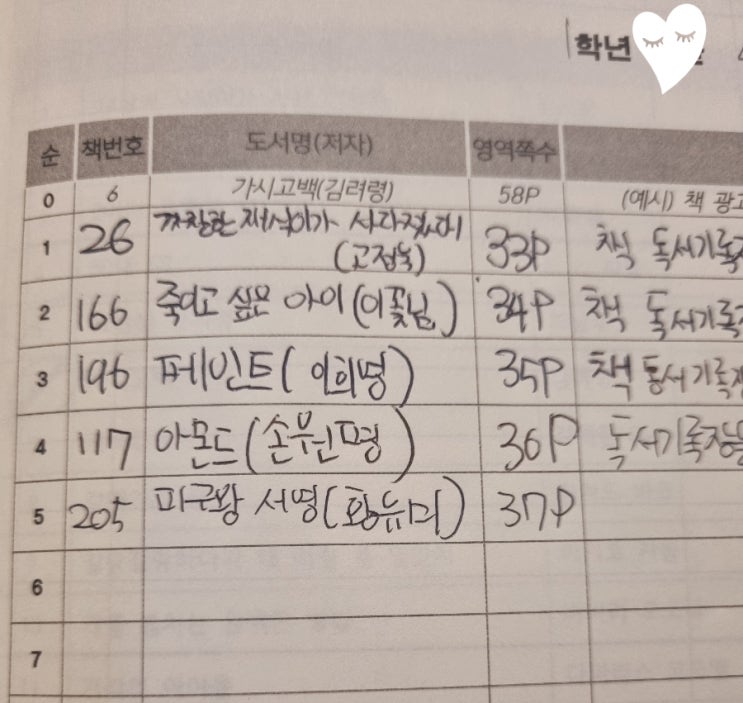 학년
순 책번호 도서명(저자) 영역쪽수
0 6 가시고백(김려령) 58P (예시) 책 광고
1 26 까칠한 재석이가 사라졌다 (고정욱) 33P 책 독서기록
2 166 죽이고 싶은 아이 (이꽃님) 34P 책 독서기록
3 196 페인트 (이희영) 35P 책 독서기록
4 117 아몬드 (손원평) 36P 독서기록장
5 205 피구왕 서영 (황유미) 37P
6
7